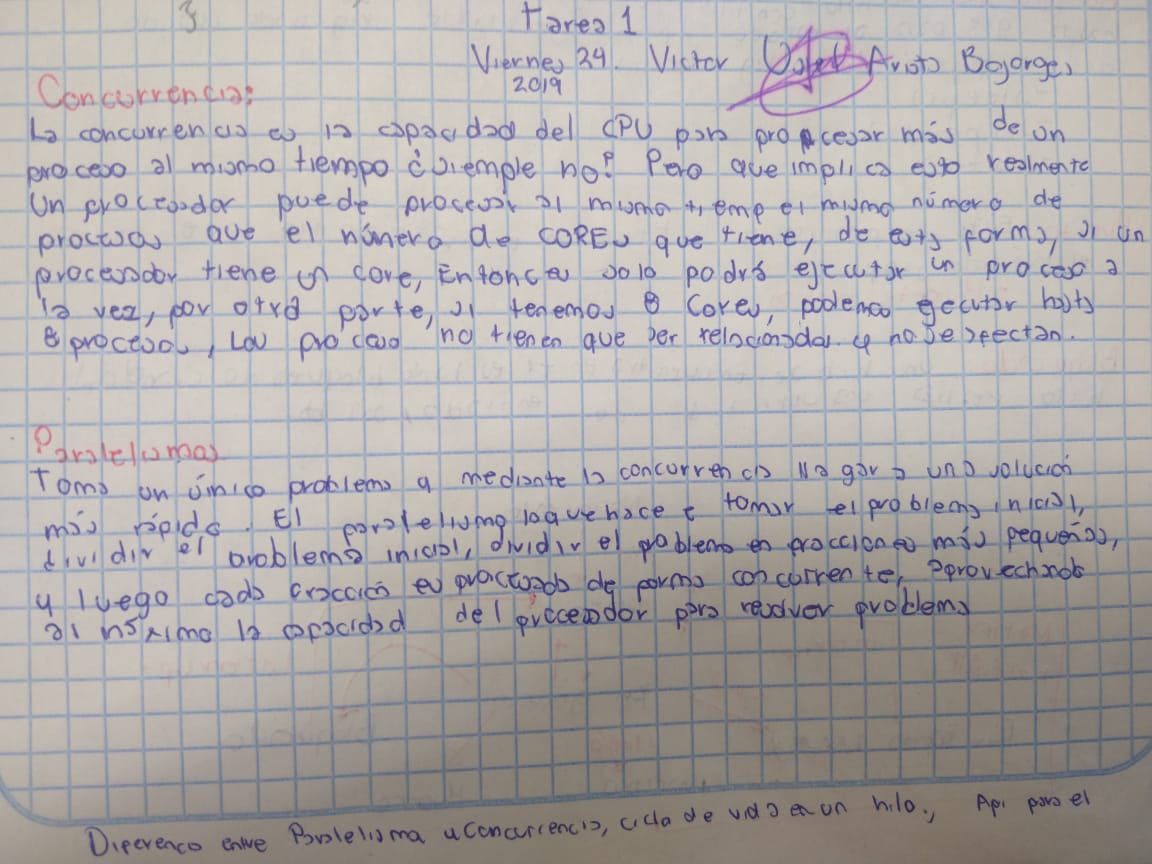 3
Tarea 1
Viernes 24. Victor Arista Bojorges
2019
Concurrencia:
La concurrencia es la capacidad del CPU para procesar más de un
proceso al mismo tiempo ¿simple no? Pero que implica esto realmente
Un procesador puede procesar al mismo tiemp el mismo número de
procesos que el número de COREs que tiene, de esta forma, si un
procesador tiene un core, Entonces solo podrá ejecutar un proceso a
la vez, por otra parte, si tenemos 8 Cores, podemos ejecutar hasta
8 procesos, Los proceso no tienen que ser relacionados y no se afectan.
Paralelismos
Toma un único problema y mediante la concurrencia llegar a una solución
más rápida. El paralelismo loque hace e tomar el problema inicial,
dividir el problema inicial, dividir el poblema en fracciones más pequeñas,
y luego cada fracción es procesada de forma concurrente, aprovechando
al máximo la capacidad del procesador para resolver problema
Diferenca entre Paralelisma y Concurrencia, ciclo de vida en un hilo., Api para el